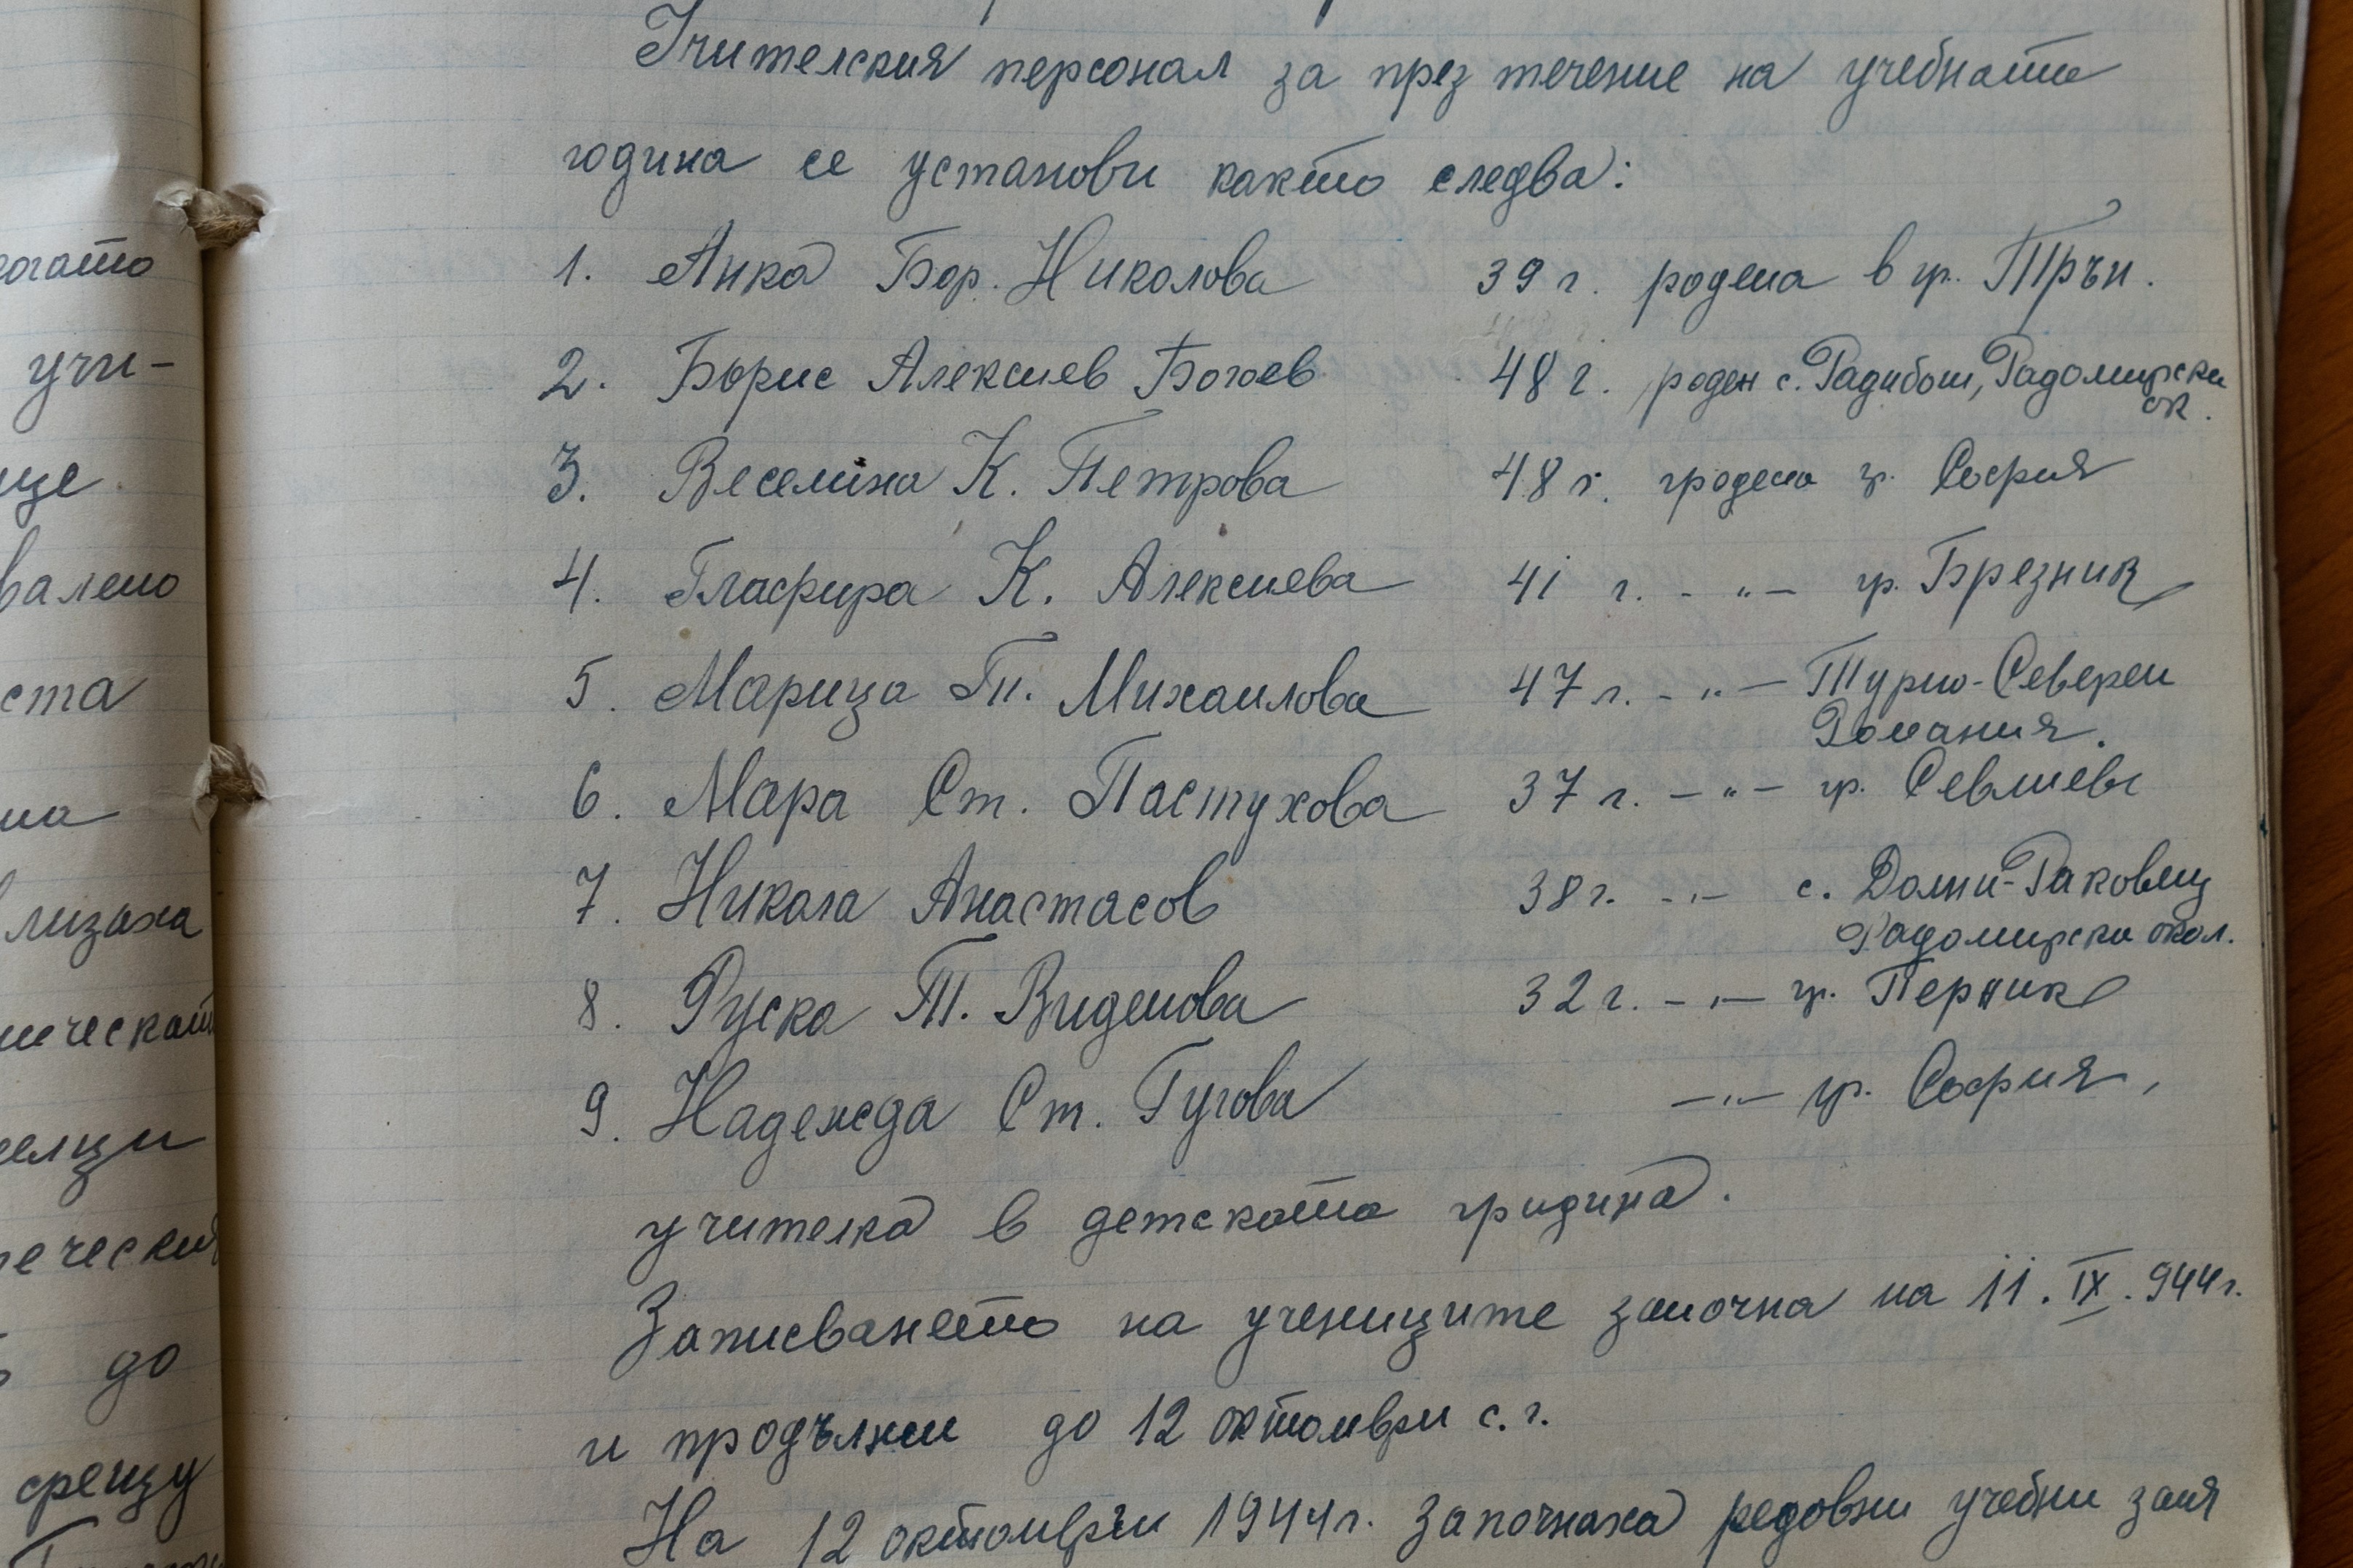 когато
учи-
ще
валено
ста
на
лизаха
ческат
елци
ически
до
срещу
Учителския персонал за през течение на учебната
година се установи както следва:
1. Анка Бор. Николова 39 г. родена в гр. Трън.
2. Борис Алексиев Богоев 48 г. роден с. Радибош, Радомирски ок.
3. Веселина К. Петрова 48 г. родена гр. София
4. Гласфира К. Алексиева 41 г. - „ - гр. Брезник
5. Марица Гп. Михаилова 47 г. - „ - Турно-Северен
Романия.
6. Мара Ст. Пастухова 37 г. - „ - гр. Севлиево
7. Никола Анастасов 38 г. - „ - с. Долни-Раковец
Радомирска окол.
8. Руска Т. Виденова 32 г. - „ - гр. Перник
9. Надежда Ст. Гугова - „ - гр. София,
учителка в детската градина.
Записването на учениците започна на 11. IX. 944 г.
и продължи до 12 октомври с. г.
На 12 октомври 1944 г. започнаха редовни учебни заня